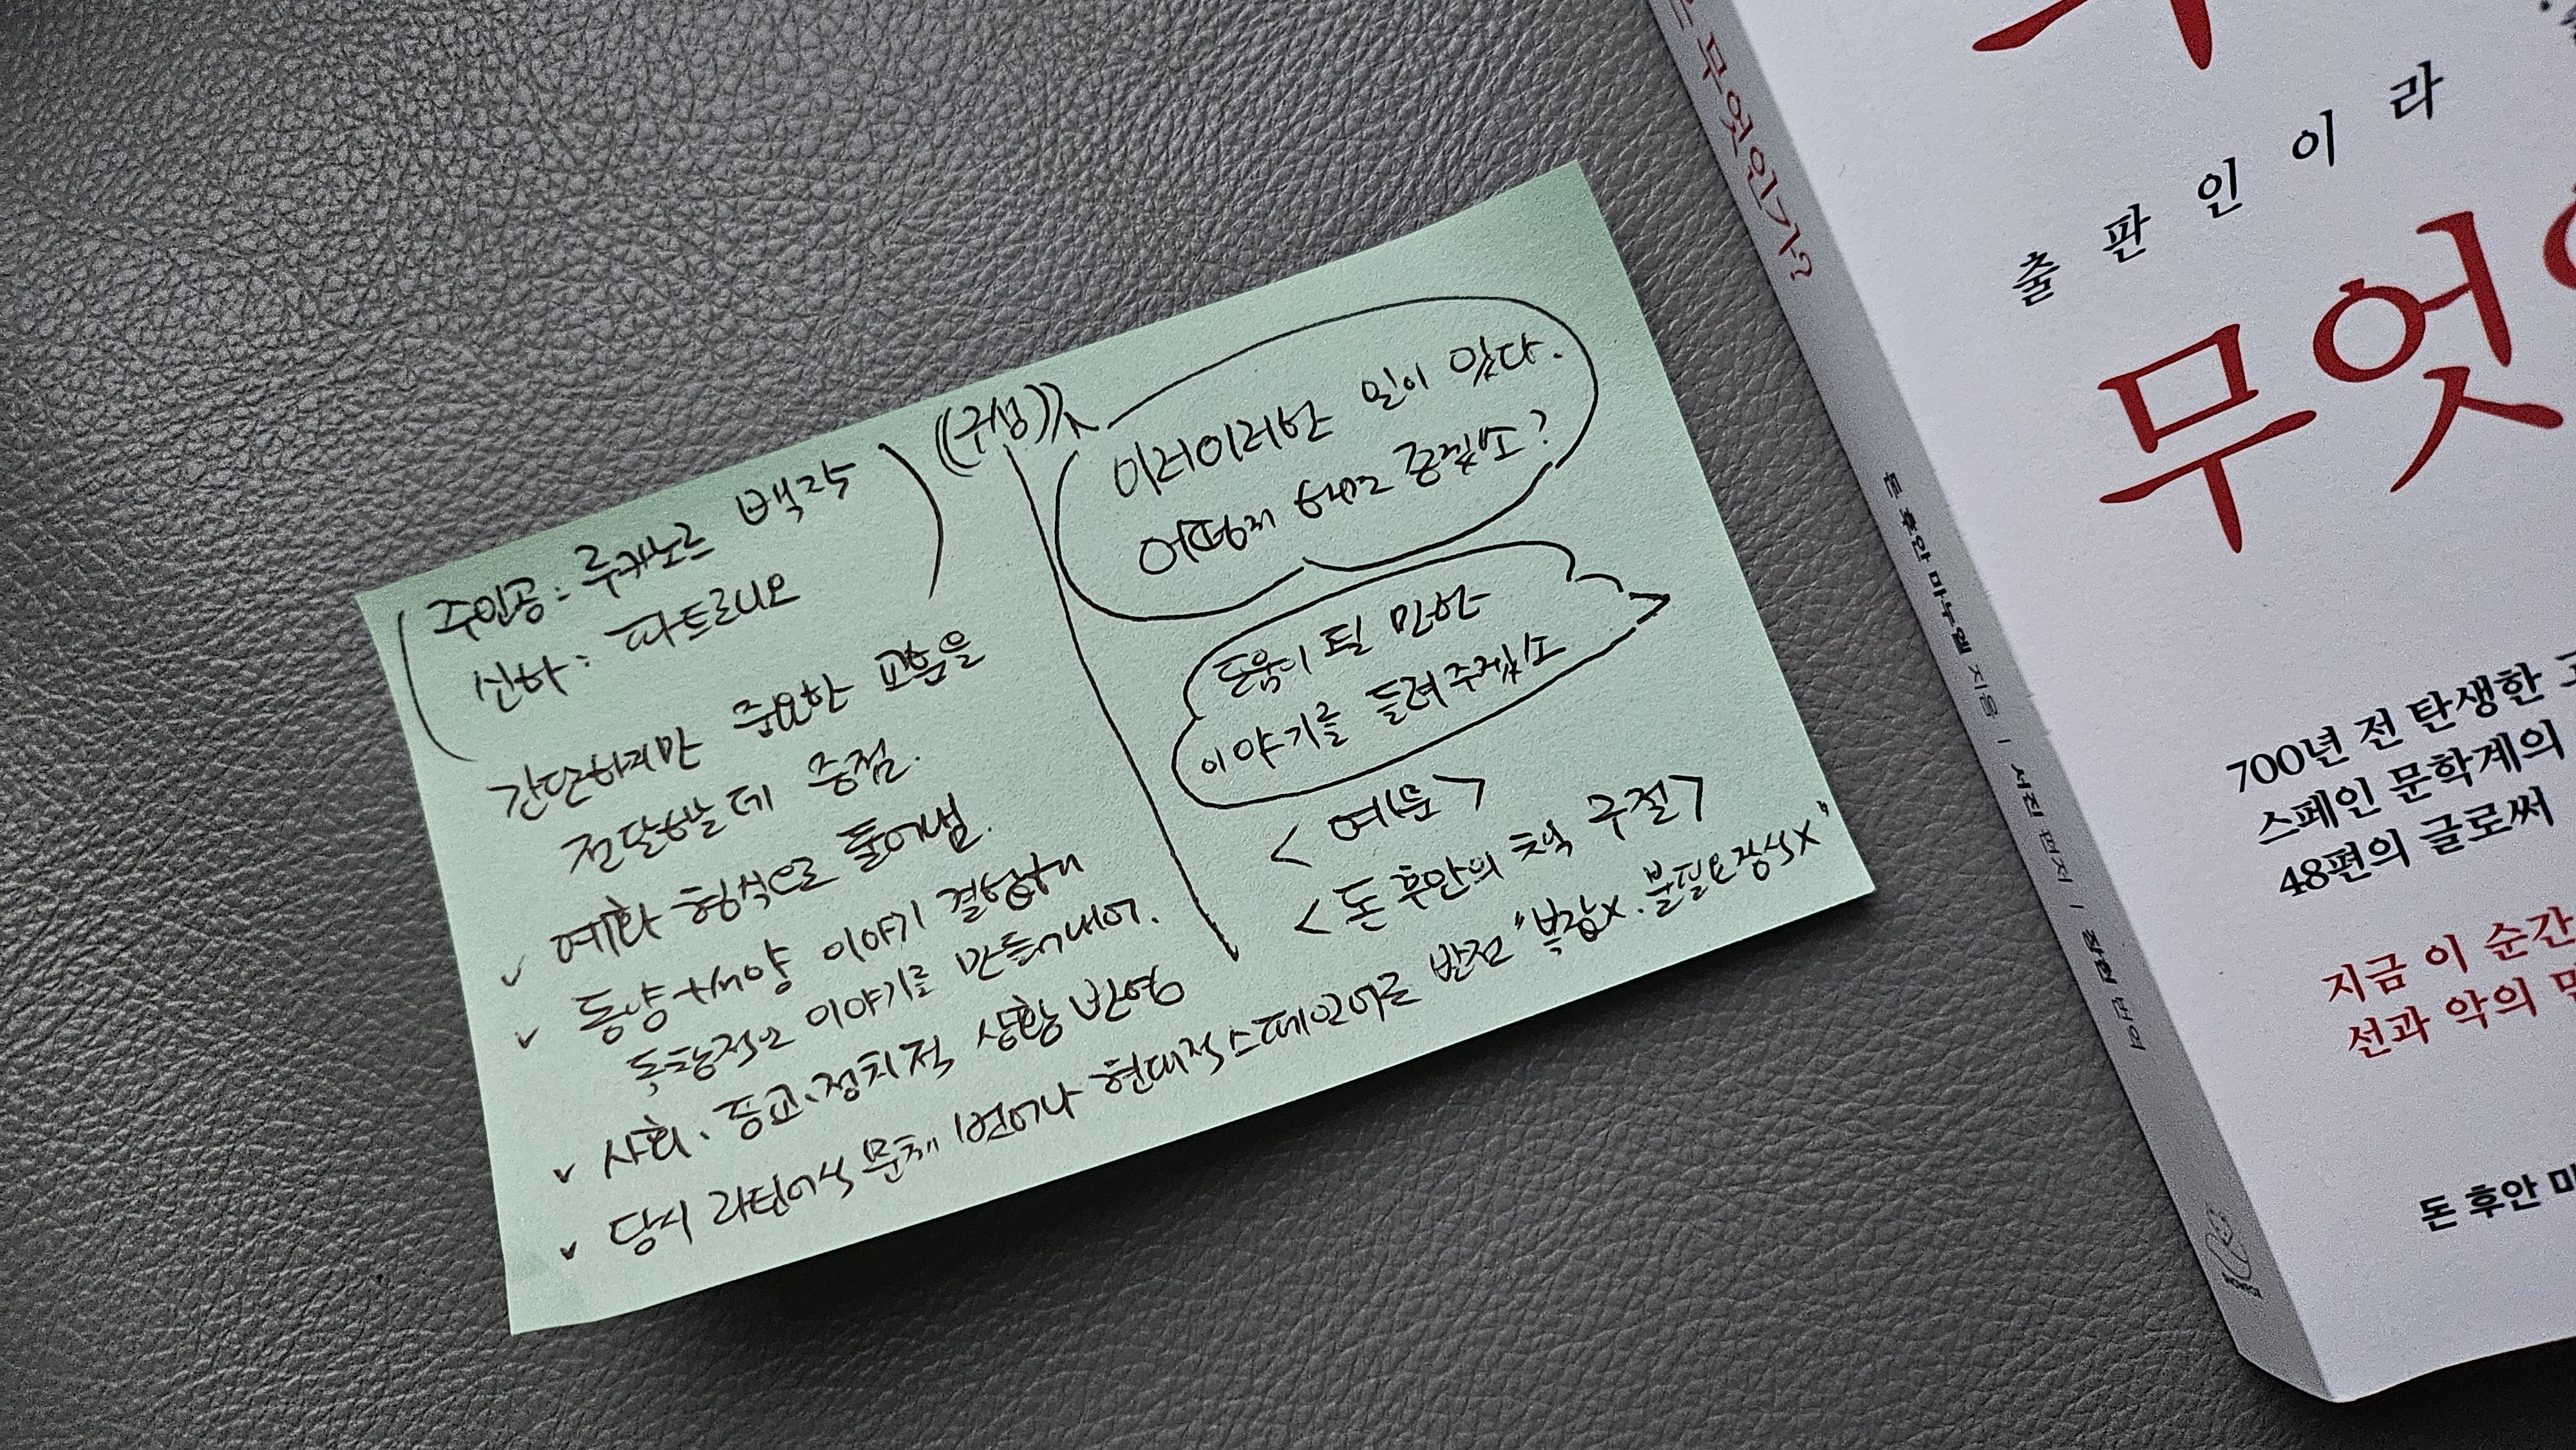 주인공: 루카노르 백작
신하: 파트로니오
간단하지만 중요한 교훈을
전달하는데 중점.
✓ 예화 형식으로 풀어냄.
✓ 동양+서양 이야기 결합해
독창적인 이야기를 만들어내어.
✓ 사회·종교·정치적 상황 반영
✓ 당시 라틴어식 문체 벗어나 현대적 스페인어로 발전 "복잡x. 불필요장식x"
((구성))
이러이러한 일이 있다.
어떻게 하면 좋겠소?
도움이 될 만한
이야기를 들려주겠소
<예문>
<돈 후안의 책 구절>
무엇인가?
돈 후안 마누엘 지음 | 서진 편저 | 번역
출판인이라
무엇
700년 전 탄생한
스페인 문학계의
48편의 글로써
지금 이 순간
선과 악의
돈 후안 마